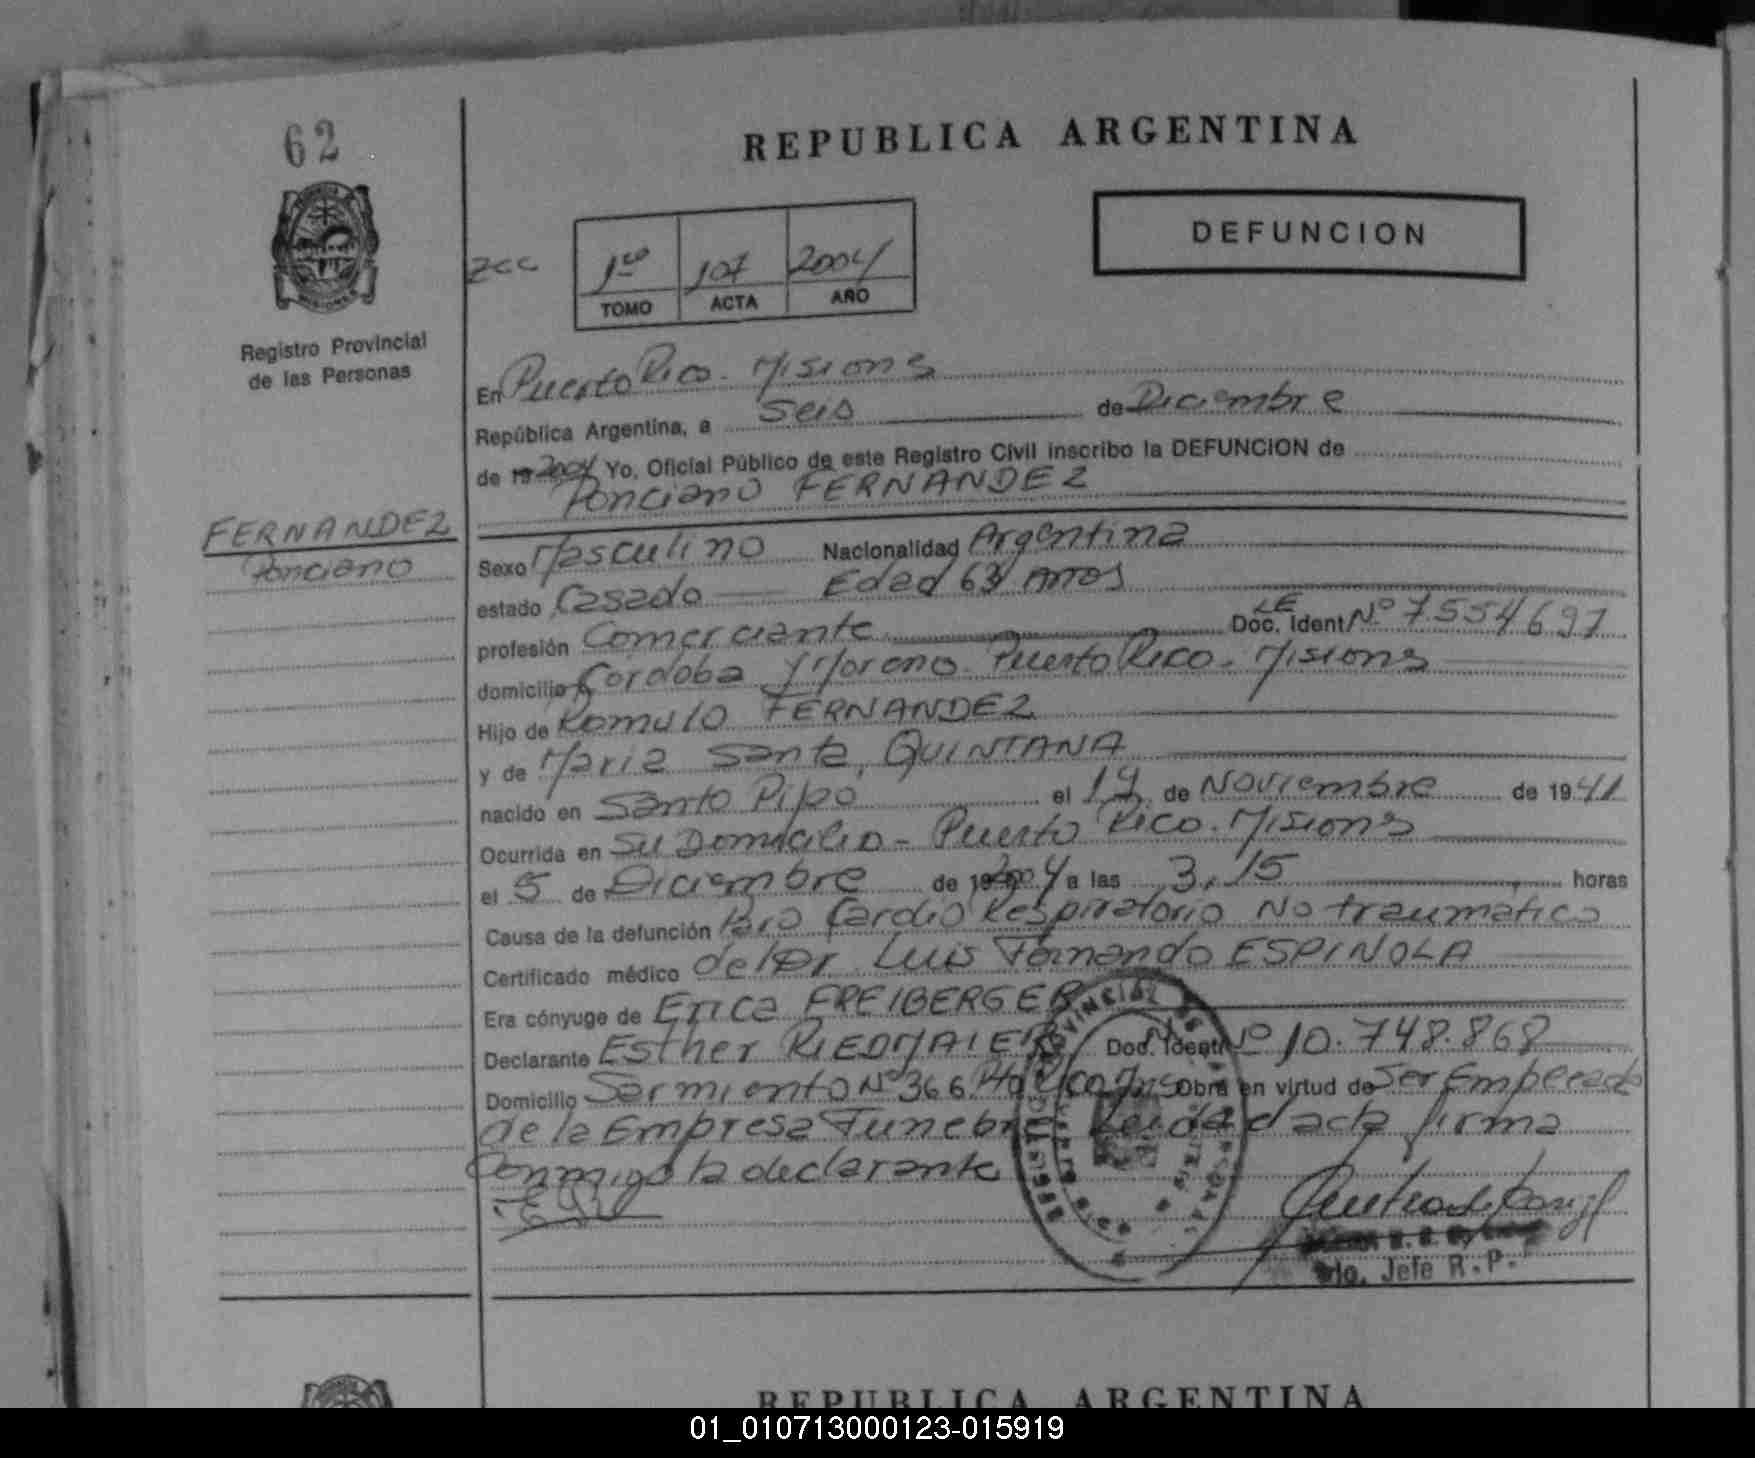 62
REPUBLICA ARGENTINA
DEFUNCION
zcc
1ro 107 2004
TOMO ACTA AÑO
Registro Provincial
de las Personas
En Puerto Rico. Misions
República Argentina, a Seis de Diciembre
de 19 2004 Yo, Oficial Público de este Registro Civil inscribo la DEFUNCION de
Ponciano FERNANDEZ
FERNANDEZ
Ponciano
Sexo Masculino Nacionalidad Argentina
estado Casado Edad 63 Años
profesión Comerciante Doc. Ident LE Nº 7554697
domicilio Cordoba y Moreno. Puerto Rico. Misions
Hijo de Romulo FERNANDEZ
y de Maria Santa, QUINTANA
nacido en Santo Pipo el 19 de Noviembre de 1941
Ocurrida en Su Domicilio - Puerto Rico. Misions
el 5 de Diciembre de 19 2004 a las 3,15 horas
Causa de la defunción Paro Cardio Respiratorio No traumatico
Certificado médico del Dr Luis Fernando ESPINOLA
Era cónyuge de Erica FREIBERGER
Declarante Esther RIEDMAIER Doc. Ident Nº 10.748.868
Domicilio Sarmiento Nº 366 Pto Rico Mns Obra en virtud de Ser Empleada
de la Empresa Funebre Leida el acta firma
Conmigo la declarante
REGISTRO PROVINCIAL DE LAS PERSONAS
Jefe R.P.
REPUBLICA ARGENTINA
01_010713000123-015919